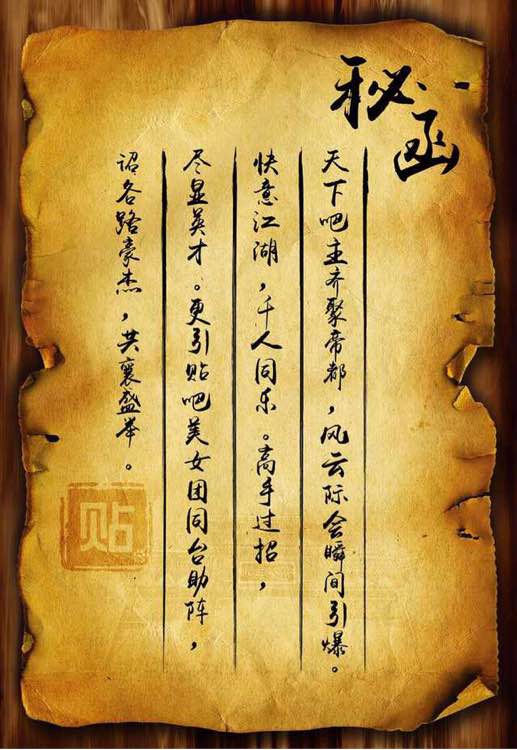 秘函
天下吧主齐聚帝都，风云际会瞬间引爆。
快意江湖，千人同乐。高手过招，
尽显英才。更引贴吧美女团同台助阵，
诏各路豪杰，共襄盛举。
贴